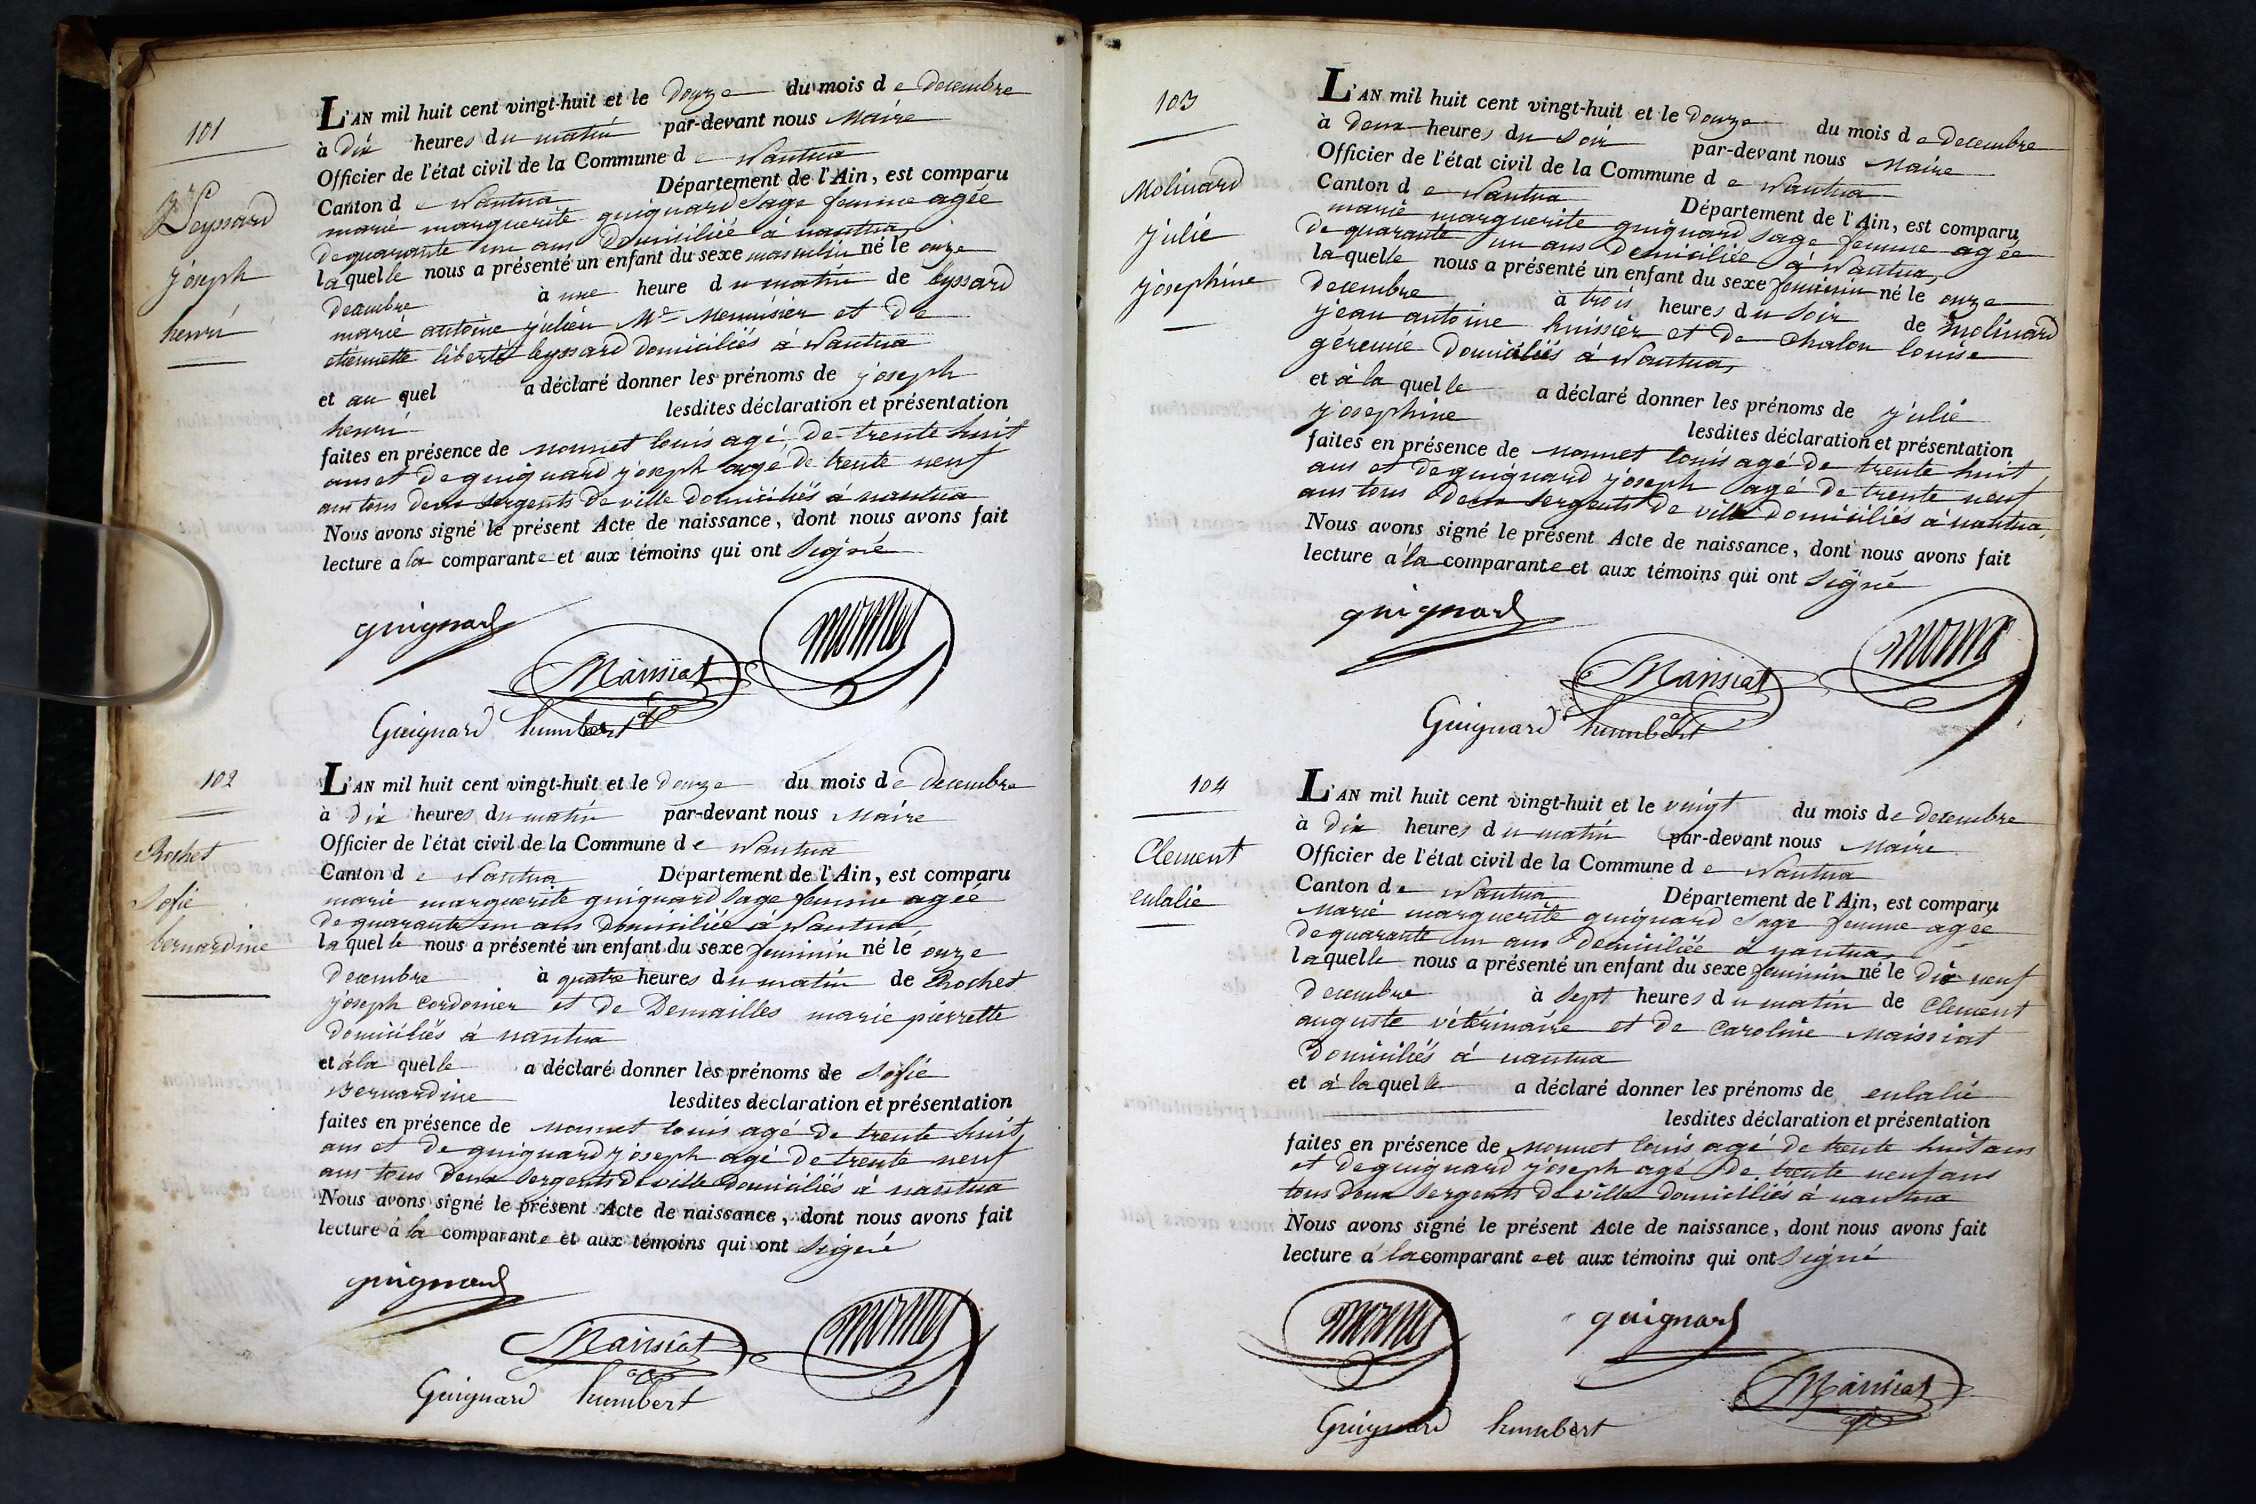 101
Leyssard
joseph
henri
L'AN mil huit cent vingt-huit et le douze du mois de decembre
à dix heures du matin par-devant nous Maire
Officier de l'état civil de la Commune de Nantua
Canton de Nantua Département de l'Ain, est comparu
marie marguerite guignard sage femme agée
de quarante un ans domiciliée à nantua,
laquelle nous a présenté un enfant du sexe masculin né le onze
decembre à une heure du matin de leyssard
marie antoine julien Md Menuisier et de
etiennette liberté leyssard domiciliés à Nantua
et au quel a déclaré donner les prénoms de joseph
henri lesdites déclaration et présentation
faites en présence de monnet louis agé de trente huit
ans et de guignard joseph agé de trente neuf
ans tous deux sergents de ville domiciliés à nantua
Nous avons signé le présent Acte de naissance, dont nous avons fait
lecture a la comparante et aux témoins qui ont signé
guignard
monnet
Maissiat
Guignard humbert
102
Rochet
sofie
bernardine
L'AN mil huit cent vingt-huit et le douze du mois de decembre
à dix heures du matin par-devant nous Maire
Officier de l'état civil de la Commune de Nantua
Canton de Nantua Département de l'Ain, est comparu
marie marguerite guignard sage femme agée
de quarante un ans domiciliée à Nantua
laquelle nous a présenté un enfant du sexe feminin né le onze
decembre à quatre heures du matin de Rochet
joseph cordonier et de Demailles marie pierrette
domiciliés à nantua
et à la quelle a déclaré donner les prénoms de sofie
Bernardine lesdites declaration et présentation
faites en présence de monnet louis agé de trente huit
ans et de guignard joseph agé de trente neuf
ans tous deux sergents de ville domiciliés à nantua
Nous avons signé le présent Acte de naissance, dont nous avons fait
lecture à la comparante et aux témoins qui ont signé
guignard
monnet
Maissiat
Guignard humbert
103
Molinard
julie
josephine
L'AN mil huit cent vingt-huit et le douze du mois de decembre
à deux heures du soir par-devant nous Maire
Officier de l'état civil de la Commune de Nantua
Canton de Nantua Département de l'Ain, est comparu
marie marguerite guignard sage femme agée
de quarante un ans domiciliée à Nantua,
laquelle nous a présenté un enfant du sexe feminin né le onze
decembre à trois heures du soir de molinard
jean antoine huissier et de chalon louise
géremie domiciliés à Nantua,
et à la quelle a déclaré donner les prénoms de julie
josephine lesdites déclaration et présentation
faites en présence de monnet louis agé de trente huit
ans et de guignard joseph agé de trente neuf
ans tous deux sergents de ville domiciliés à nantua,
Nous avons signé le présent Acte de naissance, dont nous avons fait
lecture à la comparante et aux témoins qui ont signé
guignard
monnet
Maissiat
Guignard humbert
104
Clement
eulalie
L'AN mil huit cent vingt-huit et le vingt du mois de decembre
à dix heures du matin par-devant nous Maire
Officier de l'état civil de la Commune de Nantua
Canton de Nantua Département de l'Ain, est comparu
Marie marguerite guignard sage femme agée
de quarante un ans domiciliée à nantua,
laquelle nous a présenté un enfant du sexe feminin né le dix neuf
decembre à sept heures du matin de Clement
auguste vétérinaire et de caroline Maissiat
domiciliés à nantua
et à la quelle a déclaré donner les prénoms de eulalie
lesdites déclaration et présentation
faites en présence de Monnet louis agé de trente huit ans
et de guignard joseph agé de trente neuf ans
tous deux sergents de ville domiciliés à nantua
Nous avons signé le présent Acte de naissance, dont nous avons fait
lecture á la comparante et aux témoins qui ont signé
monnet
guignard
Maissiat
Guignard humbert